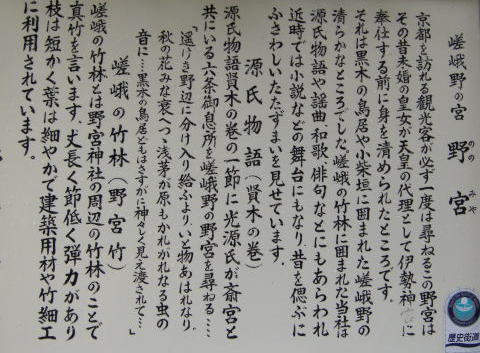 嵯峨野の宮 野宮
ののみや
京都を訪れる観光客が必ず一度は尋ねるこの野宮は
その昔未婚の皇女が天皇の代理として伊勢神宮に
奉仕する前に身を清められたところです。
それは黒木の鳥居や小柴垣に囲まれた嵯峨野の
清らかなところでした。嵯峨の竹林に囲まれた当社は
源氏物語や謡曲 和歌 俳句などにもあらわれ
近時では小説などの舞台にもなり、昔を偲ぶに
ふさわしいたたずまいを見せています。
源氏物語(賢木の巻)
源氏物語賢木の巻の一節に光源氏が斎宮と
共にいる六条御息所を嵯峨野の野宮を尋ねる……
「遥けき野辺に分け入り給ふより、いと物あはれなり、
秋の花みな衰へつつ浅茅が原もかれがれなる虫の
音に…黒木の鳥居どもはさすがに神々しく見え渡されて…」
嵯峨の竹林(野宮竹)
嵯峨の竹林とは野宮神社の周辺の竹林のことで
真竹を言います。丈長く節低く弾力があり
枝は短かく葉は細やかで建築用材や竹細工
に利用されています。
歴史街道